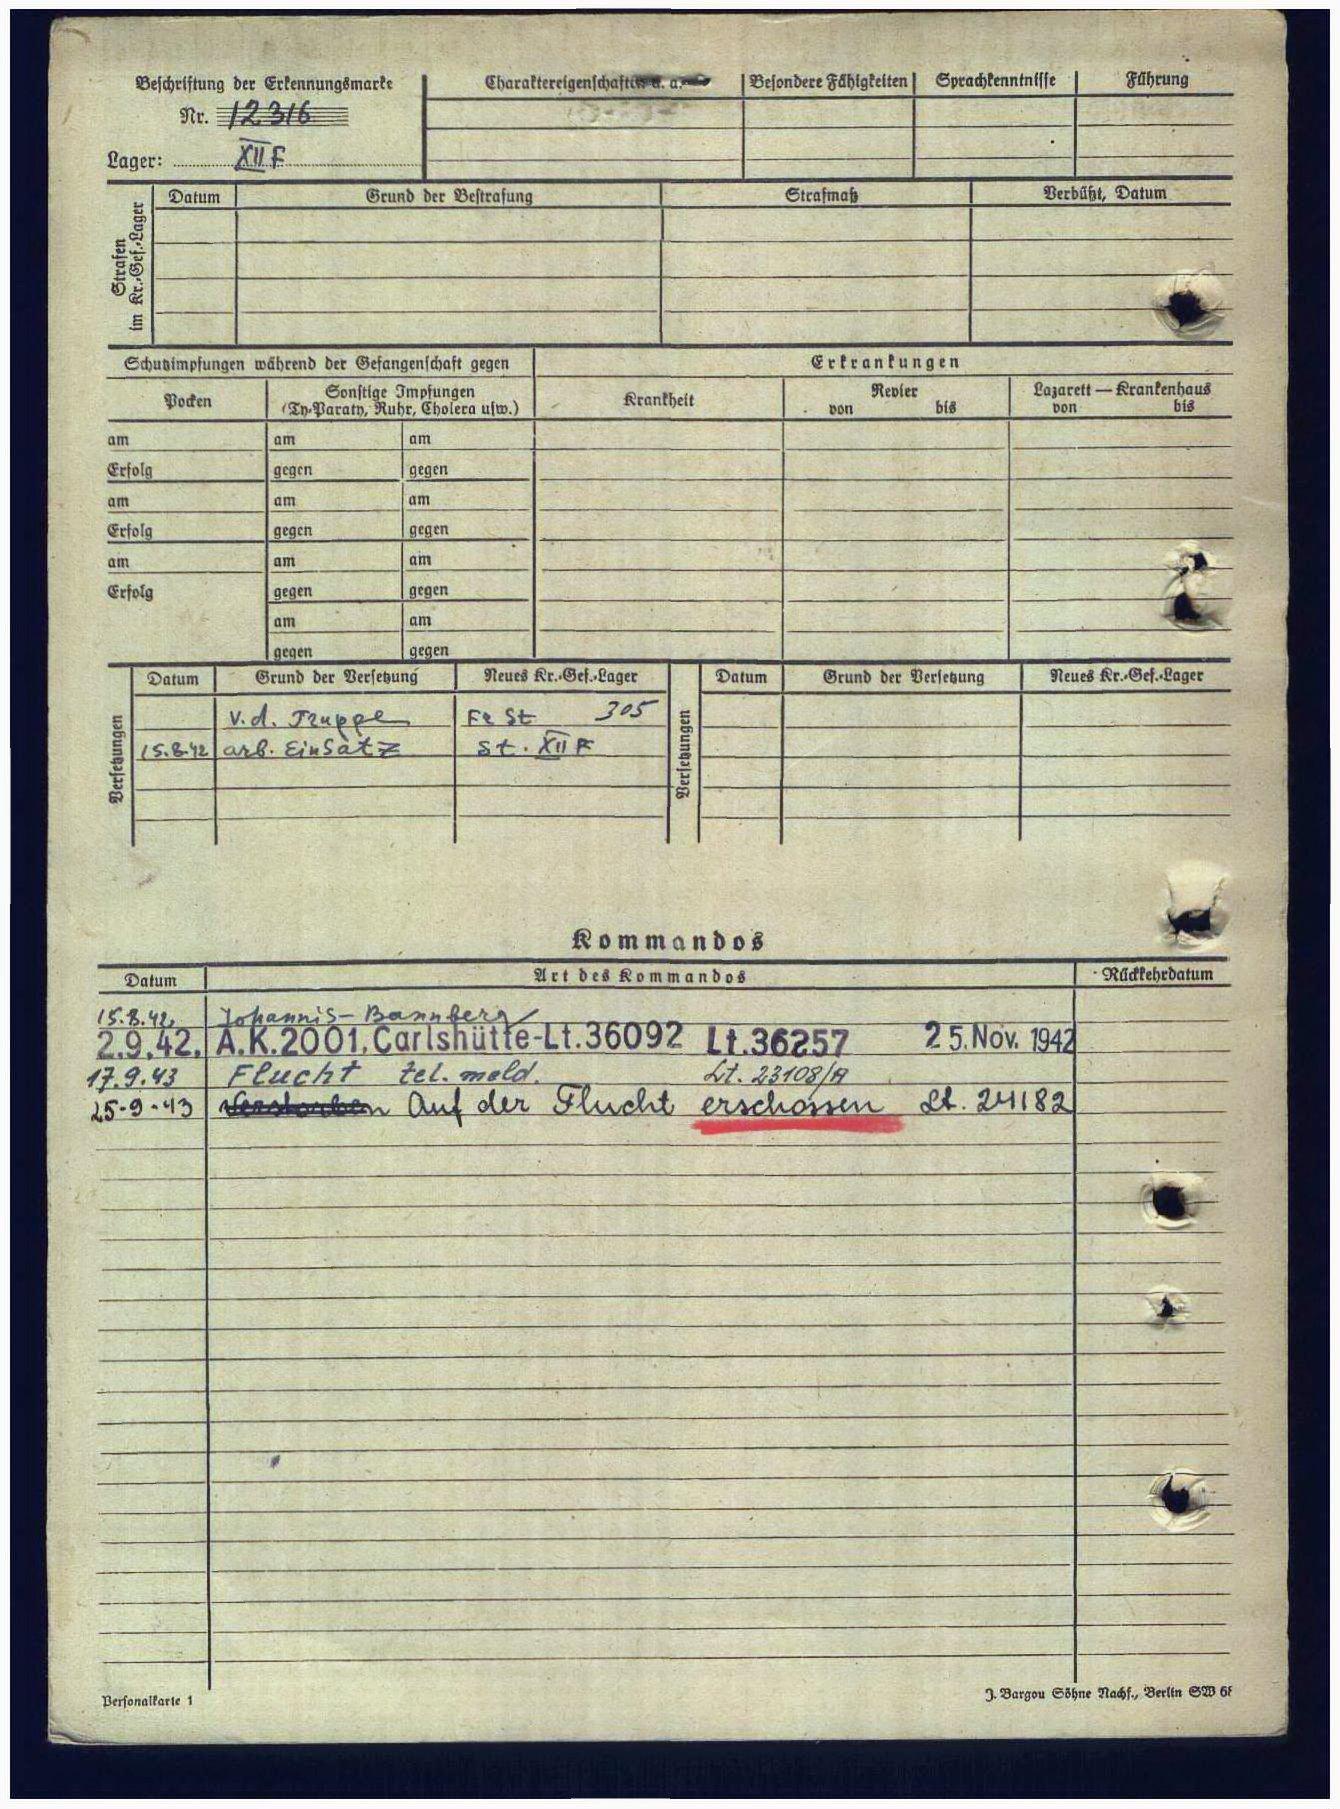 Beschriftung der Erkennungsmarke
Nr. 12316
Lager: XII F
Charaktereigenschaften u. a. Besondere Fähigkeiten Sprachkenntnisse Führung
Strafen im Kr.-Gef.-Lager
Datum Grund der Bestrafung Strafmaß Verbüßt, Datum
Schutzimpfungen während der Gefangenschaft gegen Erkrankungen
Pocken Sonstige Impfungen (Ty-Paraty, Ruhr, Cholera usw.) Krankheit Revier von bis Lazarett — Krankenhaus von bis
am am am
Erfolg gegen gegen
am am am
Erfolg gegen gegen
am am am
Erfolg gegen gegen
am am
gegen gegen
Versetzungen
Datum Grund der Versetzung Neues Kr.-Gef.-Lager
v. d. Truppe Fr St 305
15.8.42 arb. Einsatz St. XII F
Versetzungen
Datum Grund der Versetzung Neues Kr.-Gef.-Lager
Kommandos
Datum Art des Kommandos Rückkehrdatum
15.8.42. Johannis-Bannberg
2.9.42. A.K.2001, Carlshütte-Lt.36092 Lt.36257 25. Nov. 1942
17.9.43 Flucht tel. meld. Lt. 23108/A
25-9-43 Verstorben Auf der Flucht erschossen Lt. 24182
Personalkarte 1
J. Bargou Söhne Nachf., Berlin SW 68